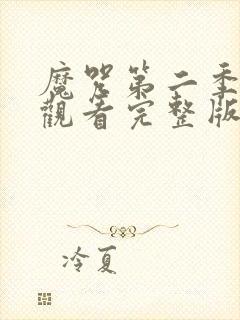 魔咒第二季
觀看完整版
冷夏